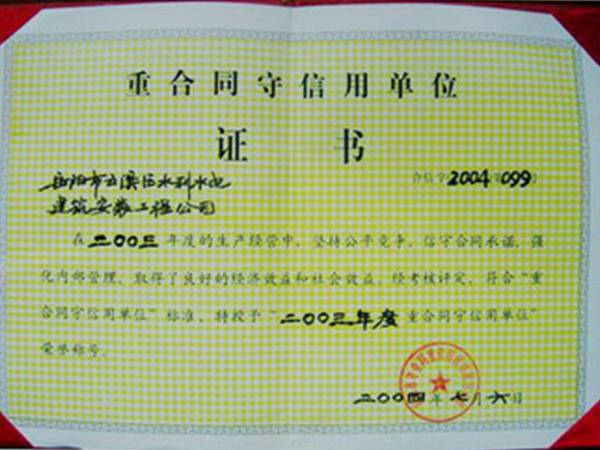 重合同守信用单位
证书
岳阳市云溪区水利水电
合信字2004第099号
建筑安装工程公司
在二00三年度的生产经营中，坚持公平竞争，信守合同承诺，强
化内部管理，取得了良好的经济效益和社会效益，经考核评定，符合“重
合同守信用单位”标准、特授予“二00三年度重合同守信用单位”
荣誉称号。
二00四年七月六日